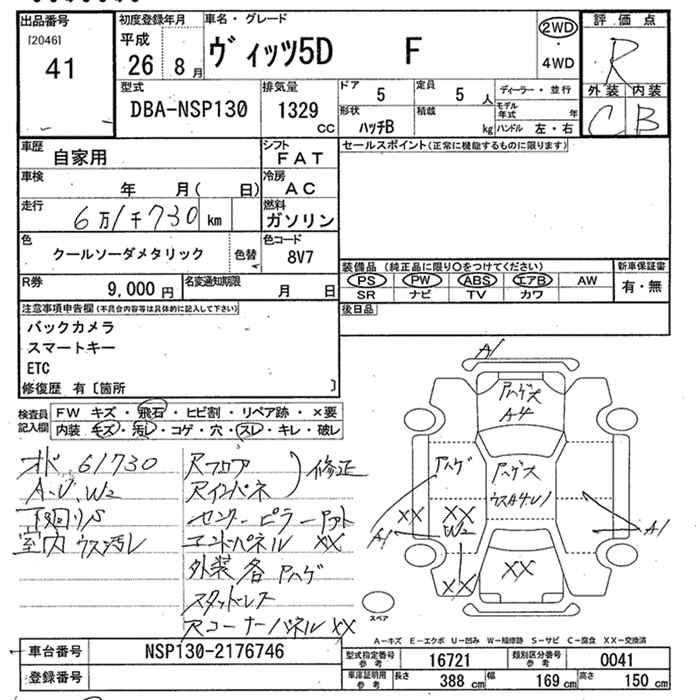 出品番号
[2046]
41
初度登録年月
平成
26 8月
車名・グレード
ヴィッツ5D F
2WD
・
4WD
評価点
R
外装 内装
C B
型式
DBA-NSP130
排気量
1329 CC
ドア 5
定員 5 人
形状 ハッチB
積載 kg
ディーラー・並行
モデル年式 年
ハンドル 左・右
車歴
自家用
シフト
FAT
車検
年 月( 日)
冷房
AC
走行
6万1千730 km
燃料
ガソリン
色
クールソーダメタリック
色替
色コード
8V7
R券
9,000円
名変通知期限
月 日
セールスポイント(正常に機能するものに限ります)
装備品(純正品に限り〇をつけてください)
PS PW ABS エアB AW
SR ナビ TV カワ
新車保証書
有・無
後日品
注意事項申告欄(不具合内容等は具体的に記入して下さい)
バックカメラ
スマートキー
ETC
修復歴 有〔箇所 〕
検査員記入欄
FW キズ・飛石・ヒビ割・リペア跡・×要
内装 キズ・汚レ・コゲ・穴・スレ・キレ・破レ
オド 61730
A.U.W2
下回りS
室内 ウス汚レ
Rフロア
Rインパネ
修正
センターピラー
エンドパネル XX
外装 各 アハゲ
スタッドレス
Rコーナーパネル XX
A1
アハゲス
A4
アハゲ
アハゲス
ウスA4.U1
XX
XX
W2
XX
A1
A1
XX
スペア
A-キズ E-エクボ U-凹み W-補修跡 S-サビ C-腐食 XX-交換済
車台番号
NSP130-2176746
登録番号
型式指定番号 参考
16721
類別区分番号 参考
0041
車庫証明用 参考
長さ 388 cm
幅 169 cm
高さ 150 cm